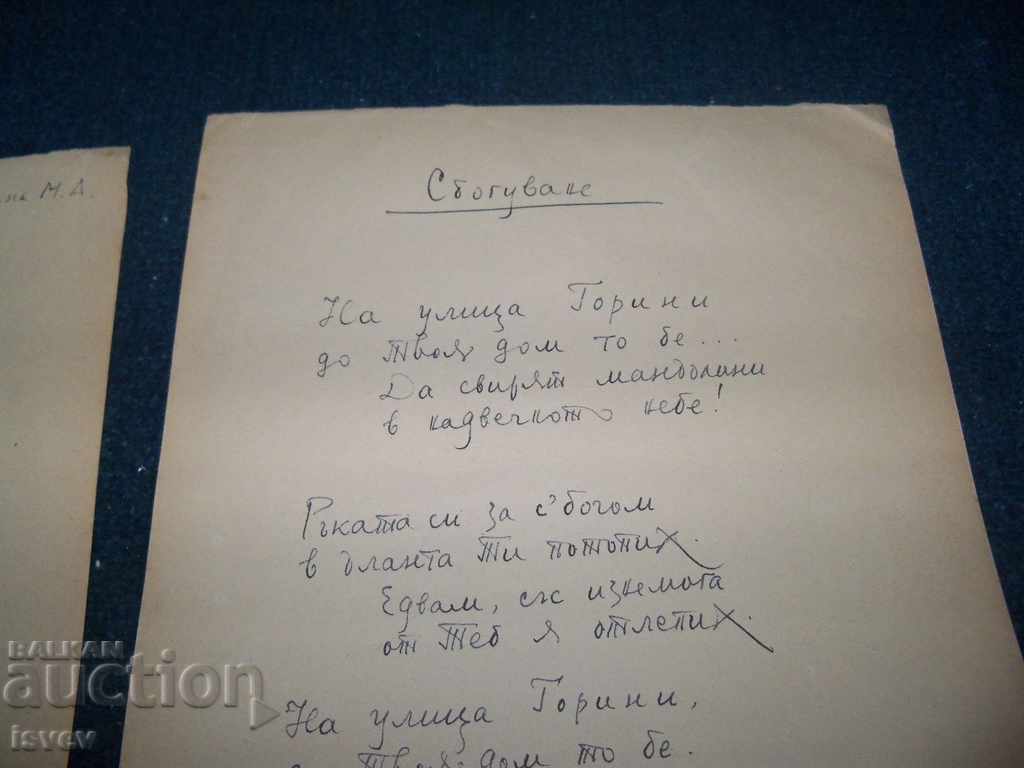 М. Д.
Сбогуване
На улица Горини
до Твоя дом то бе...
Да свирят мандолини
в надвечното небе!
Ръката си за с'богом
в дланта Ти потопих.
Едвам, със изнемога
от Теб я отлепих.
На улица Горини,
до Твоя дом то бе.
BALKAN
auction
isvev